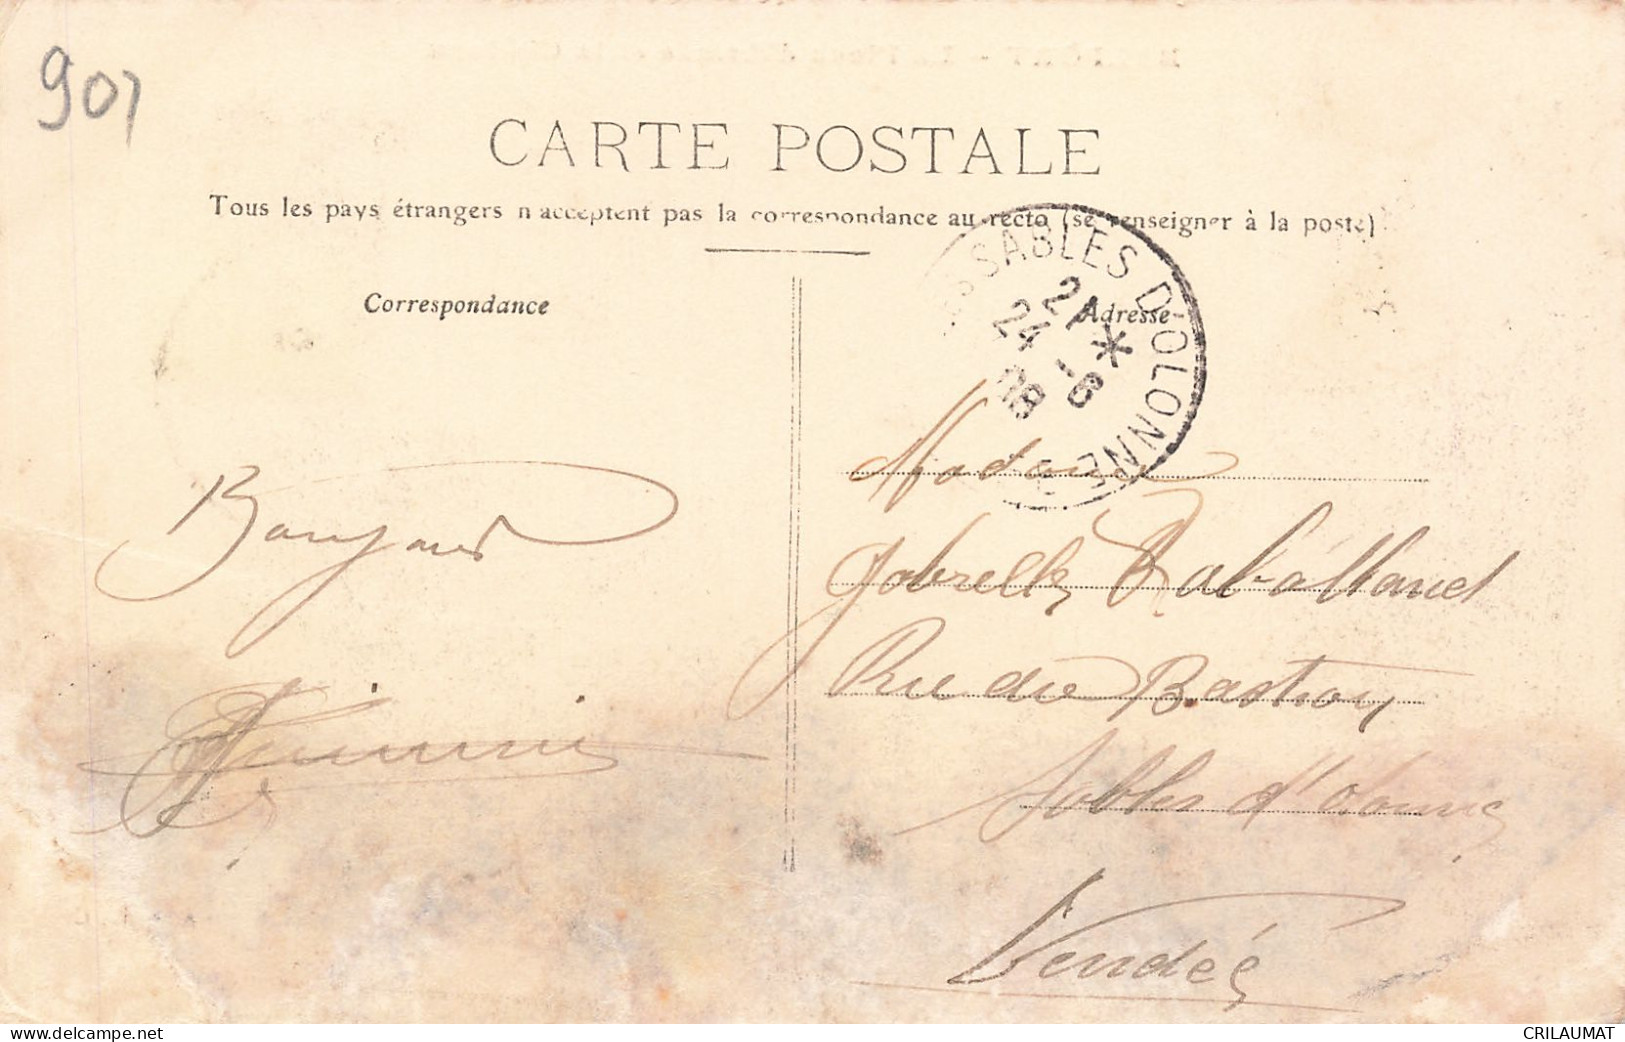 907
CARTE POSTALE
Tous les pays étrangers n'acceptent pas la correspondance au recto (se renseigner à la poste)
Correspondance
Adresse
SABLES D'OLONNE
21 *
24 - 8
08
Bonjour
Madame
Gabrielle Raballand
Rue du Bastion
Sables d'Olonne
Vendée
www.delcampe.net
CRILAUMAT